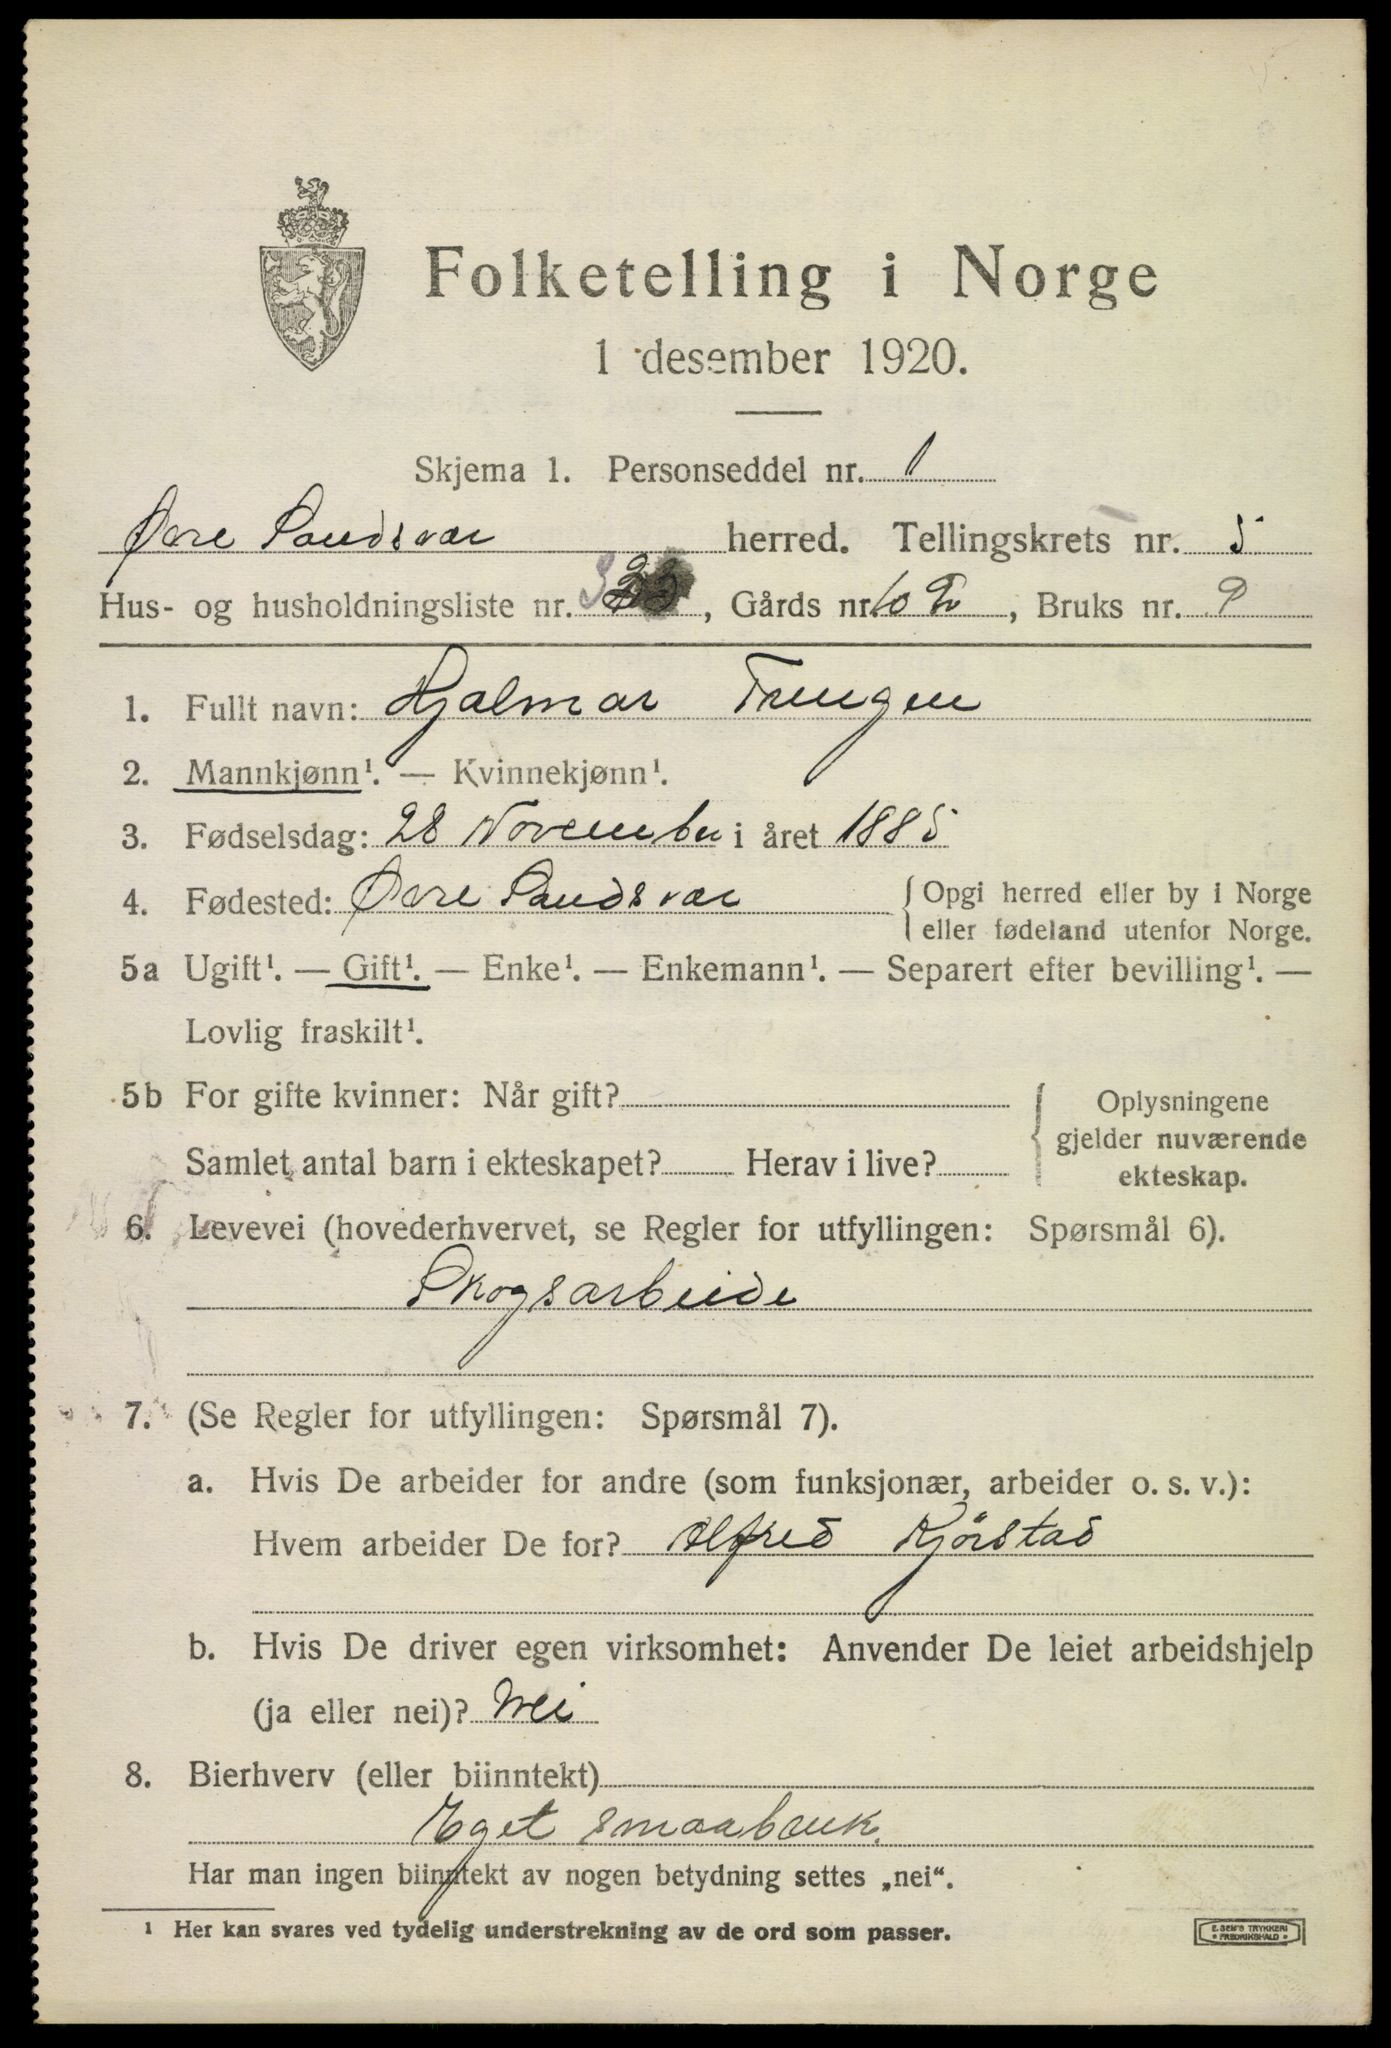 Folketelling i Norge
1 desember 1920.
Skjema 1. Personseddel nr. 1
Øvre Sandsvær herred. Tellingskrets nr. 5
Hus- og husholdningsliste nr. , Gårds nr. , Bruks nr. 9
1. Fullt navn: Hjalmar
2. Mannkjønn¹. — Kvinnekjønn¹.
3. Fødselsdag: 28 November i året 1885
4. Fødested: Øvre Sandsvær { Opgi herred eller by i Norge
eller fødeland utenfor Norge.
5a Ugift¹. — Gift¹. — Enke¹. — Enkemann¹. — Separert efter bevilling¹. —
Lovlig fraskilt¹.
5b For gifte kvinner: Når gift? { Oplysningene
gjelder nuværende
Samlet antal barn i ekteskapet? Herav i live? ekteskap.
6. Levevei (hovederhvervet, se Regler for utfyllingen: Spørsmål 6).
Skogsarbeide
7. (Se Regler for utfyllingen: Spørsmål 7).
a. Hvis De arbeider for andre (som funksjonær, arbeider o. s. v.):
Hvem arbeider De for? Alfred Kjörstad
b. Hvis De driver egen virksomhet: Anvender De leiet arbeidshjelp
(ja eller nei)? Nei
8. Bierhverv (eller biinntekt)
Eget smaabruk.
Har man ingen biinntekt av nogen betydning settes „nei“.
¹ Her kan svares ved tydelig understrekning av de ord som passer.
E. SEM'S TRYKKERI
• FREDRIKSHALD •